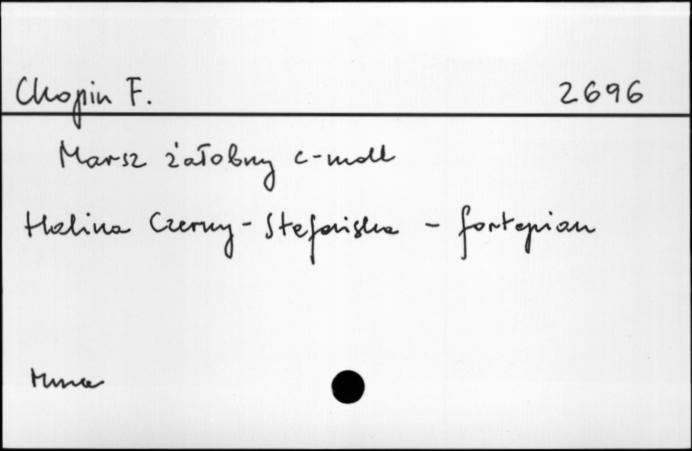 Chopin F. 2696
Marsz żałobny c-moll
Halina Czerny-Stefańska - fortepian
Muza